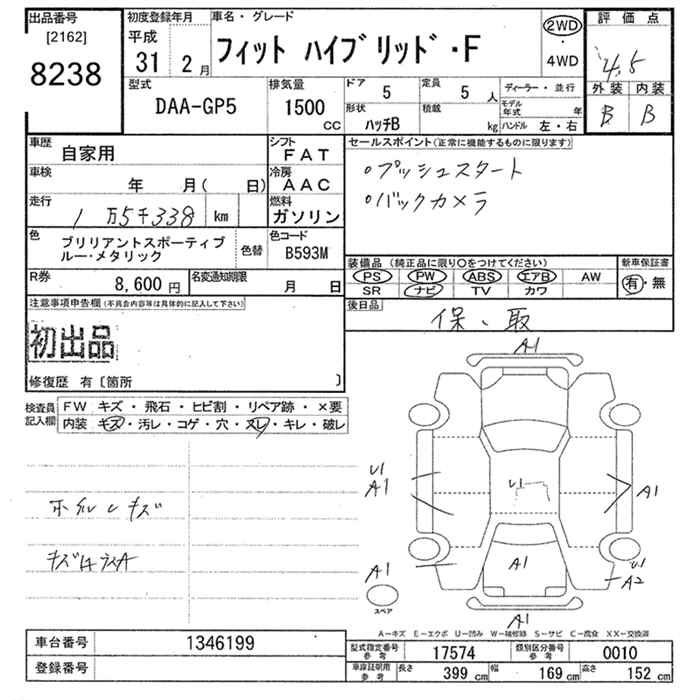 出品番号 初度登録年月 車名・グレード 評価点
[2162] 平成 2WD
8238 31 2月 フィット ハイブリッド・F 4WD 4.5
型式 排気量 ドア 5 定員 5人 ディーラー・並行 外装 内装
DAA-GP5 1500 cc 形状 ハッチB 積載 kg モデル年式 年 B B
ハンドル 左・右
車歴 自家用 シフト FAT セールスポイント(正常に機能するものに限ります)
車検 年 月( 日) 冷房 AAC ・プッシュスタート
走行 1万5千338 km 燃料 ガソリン ・バックカメラ
色 ブリリアントスポーティブ 色替 色コード
ルー・メタリック B593M
装備品(純正品に限り○をつけてください) 新車保証書
R券 8,600円 名変通知期限 月 日 PS PW ABS エアB AW 有・無
SR ナビ TV カワ
注意事項申告欄(不具合内容等は具体的に記入して下さい) 後日品
初出品 保、取
修復歴 有〔箇所 〕
検査員 FW キズ・飛石・ヒビ割・リペア跡・×要
記入欄 内装 キズ・汚レ・コゲ・穴・スレ・キレ・破レ
A1
U1
A1 U1 A1
ホイルキズ
A1
A1 U1
A2
スペア A1
A-キズ E-エクボ U-凹み W-補修跡 S-サビ C-腐食 XX-交換済
車台番号 1346199
型式指定番号 参考 17574 類別区分番号 参考 0010
登録番号
車庫証明用 参考 長さ 399cm 幅 169cm 高さ 152cm